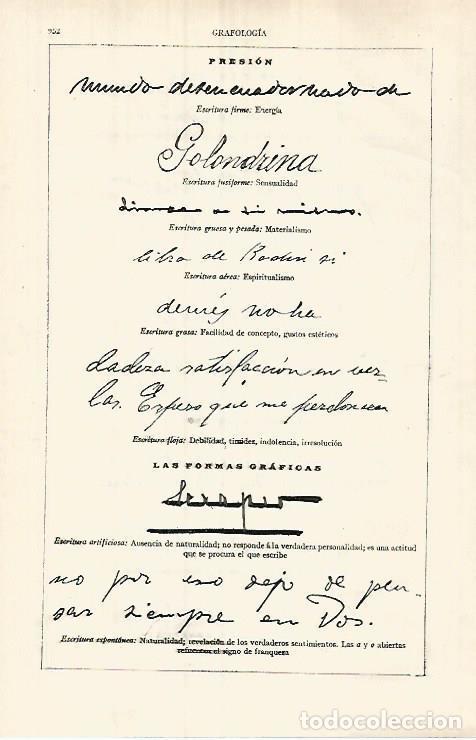 952
GRAFOLOGÍA
PRESIÓN
mundo desencuadernado de
Escritura firme: Energía
Golondrina
Escritura fusiforme: Sensualidad
Escritura gruesa y pesada: Materialismo
libro de Rodin si
Escritura aérea: Espiritualismo
demés no ha
Escritura grasa: Facilidad de concepto, gustos estéticos
dadera satisfacción en ver-
las. Espero que me perdonen
Escritura floja: Debilidad, timidez, indolencia, irresolución
LAS FORMAS GRÁFICAS
Serapio
Escritura artificiosa: Ausencia de naturalidad; no responde á la verdadera personalidad; es una actitud
que se procura el que escribe
no por eso dejo de pen-
sar siempre en Vds.
Escritura espontánea: Naturalidad; revelación de los verdaderos sentimientos. Las a y o abiertas
refuerzan el signo de franqueza
todocoleccion